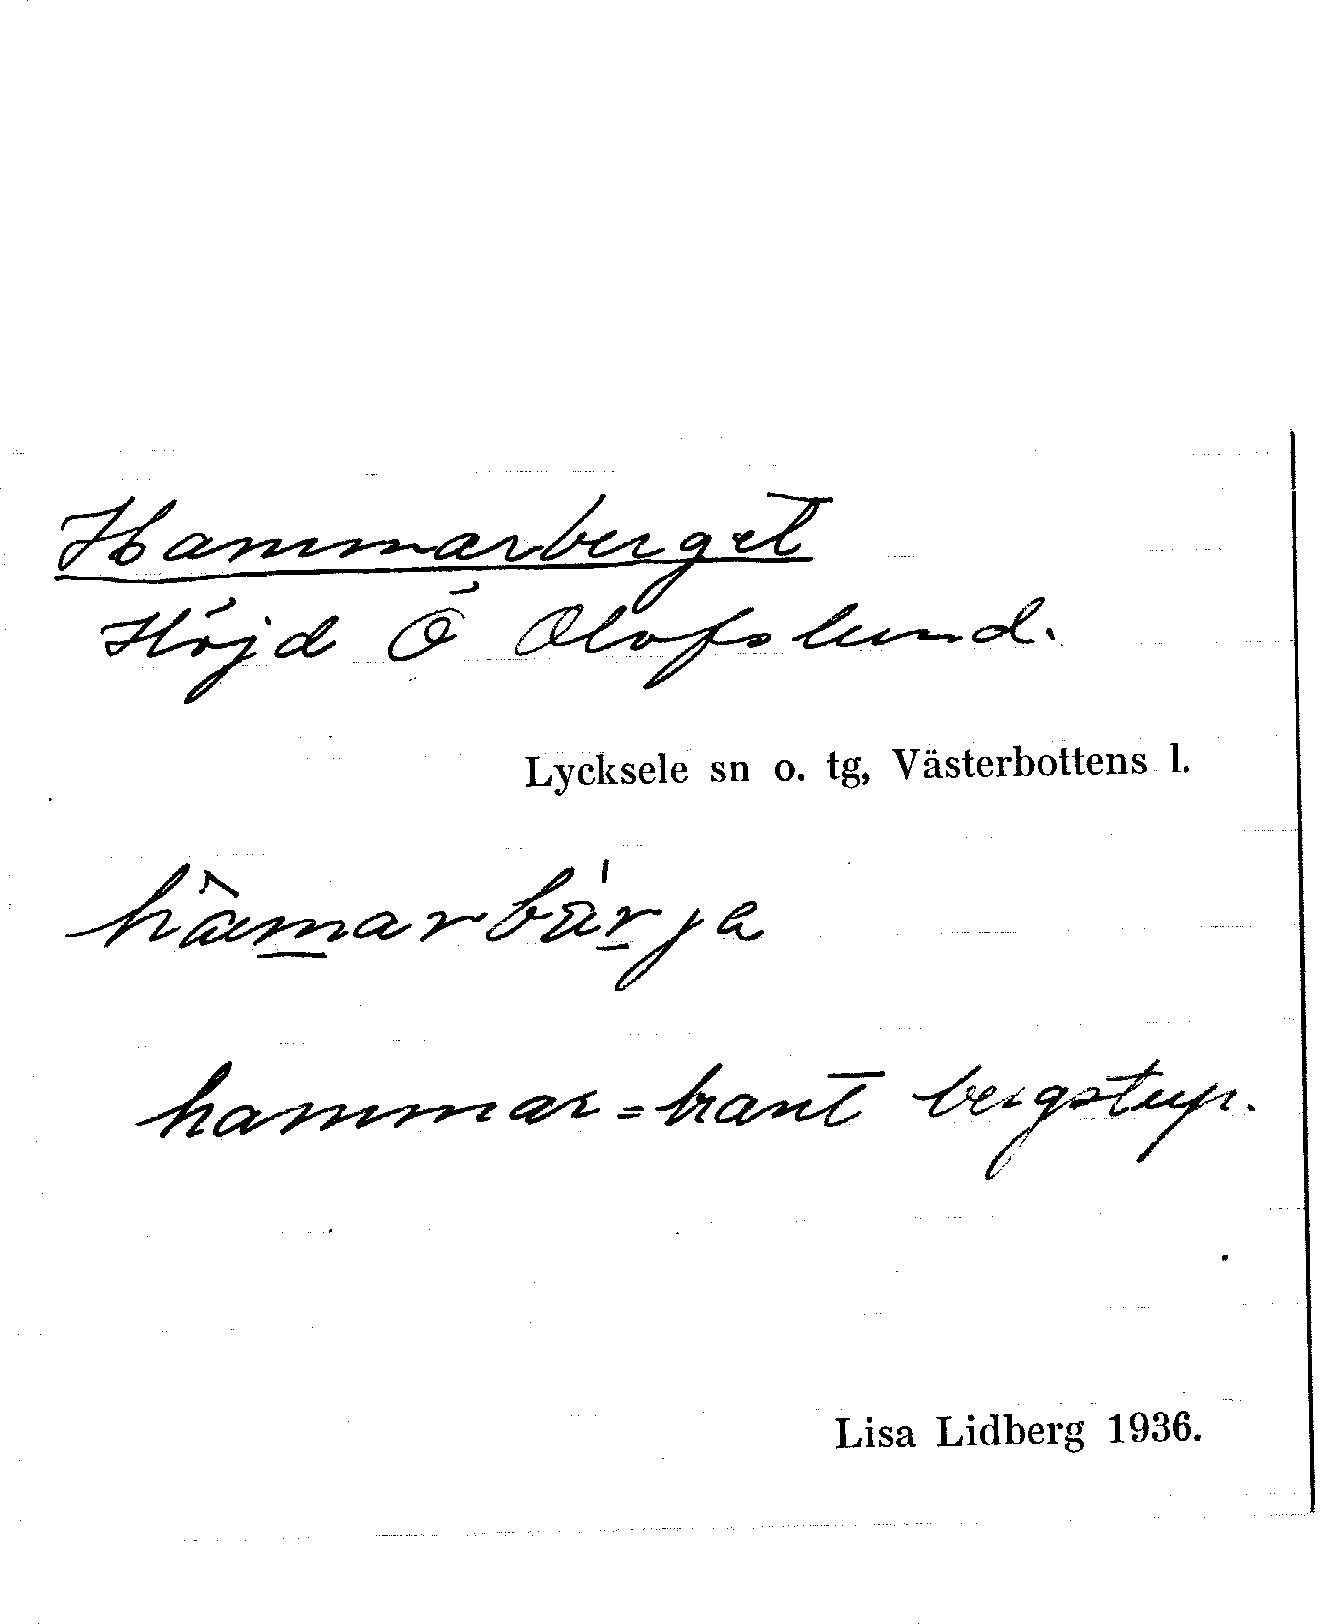 Hammarberget
Höjd Ö Olofslund.
Lycksele sn o. tg, Västerbottens l.
hâmarbä̀rja
hammar = brant bergstup.
Lisa Lidberg 1936.